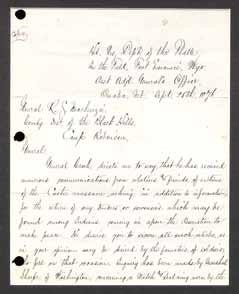 Hd. Qrs. Dept. of the Platte
In the Field, Fort Laramie, Wyo.
Asst. Adjt. General's Office
Omaha, Apl. 28th, 1877
General R. S. Mackenzie,
Comdg. Dist. of the Black Hills,
Camp Robinson.
General:
General Crook directs me to say, that he has received
numerous communications from relatives & friends of victims
of the Custer massacre, asking in addition to information
for the return of any articles or souvenirs which may be
found among Indians coming in upon the Reservation to
make peace. He desires you to secure all such articles, as
in your opinion may be desired by the families of soldiers
who fell on that occasion. Inquiry has been made by
of Washington, concerning a Watch & worn by the